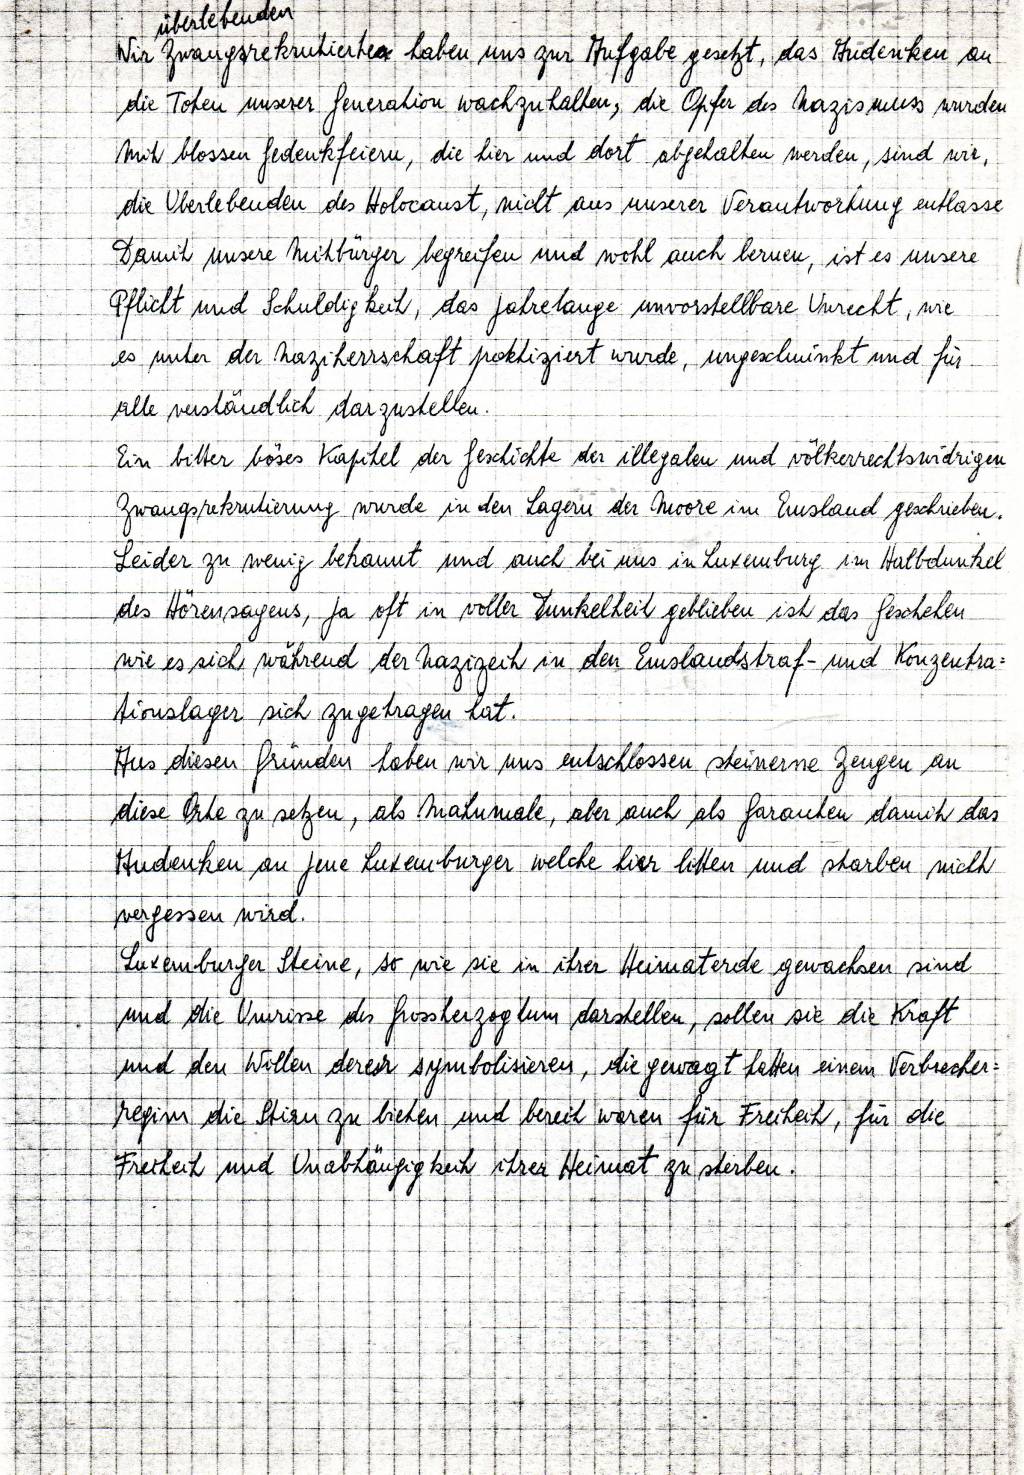 überlebenden
Wir Zwangsrekrutierten haben uns zur Aufgabe gesetzt, das Andenken an
die Toten unserer Generation wachzuhalten, die Opfer des Nazismuss wurden
Mit blossen Gedenkfeiern, die hier und dort abgehalten werden, sind wir,
die Überlebenden des Holocaust, nicht aus unserer Verantwortung entlasse
Damit unsere Mitbürger begreifen und wohl auch lernen, ist es unsere
Pflicht und Schuldigkeit, das jahrelange unvorstellbare Unrecht, wie
es unter der Naziherrschaft praktiziert wurde, ungeschminkt und für
alle verständlich darzustellen.
Ein bitter böses Kapitel der Geschichte der illegalen und völkerrechtswidrigen
Zwangsrekrutierung wurde in den Lagern der Moore im Emsland geschrieben.
Leider zu wenig bekannt und auch bei uns in Luxemburg im Halbdunkel
des Hörensagens, ja oft in voller Dunkelheit geblieben ist das Geschehen
wie es sich während der Nazizeit in den Emslandstraf- und Konzentra=
tionslager sich zugetragen hat.
Aus diesen Gründen haben wir uns entschlossen steinerne Zeugen an
diese Orte zu setzen, als Mahnmale, aber auch als Garanten damit das
Andenken an jene Luxemburger welche hier litten und starben nicht
vergessen wird.
Luxemburger Steine, so wie sie in ihrer Heimaterde gewachsen sind
und die Umrisse des Grossherzogtum darstellen, sollen sie die Kraft
und den Willen derer symbolisieren, die gewagt hatten einem Verbrecher=
regim die Stirn zu bieten und bereit waren für Freiheit, für die
Freiheit und Unabhängigkeit ihrer Heimat zu sterben.